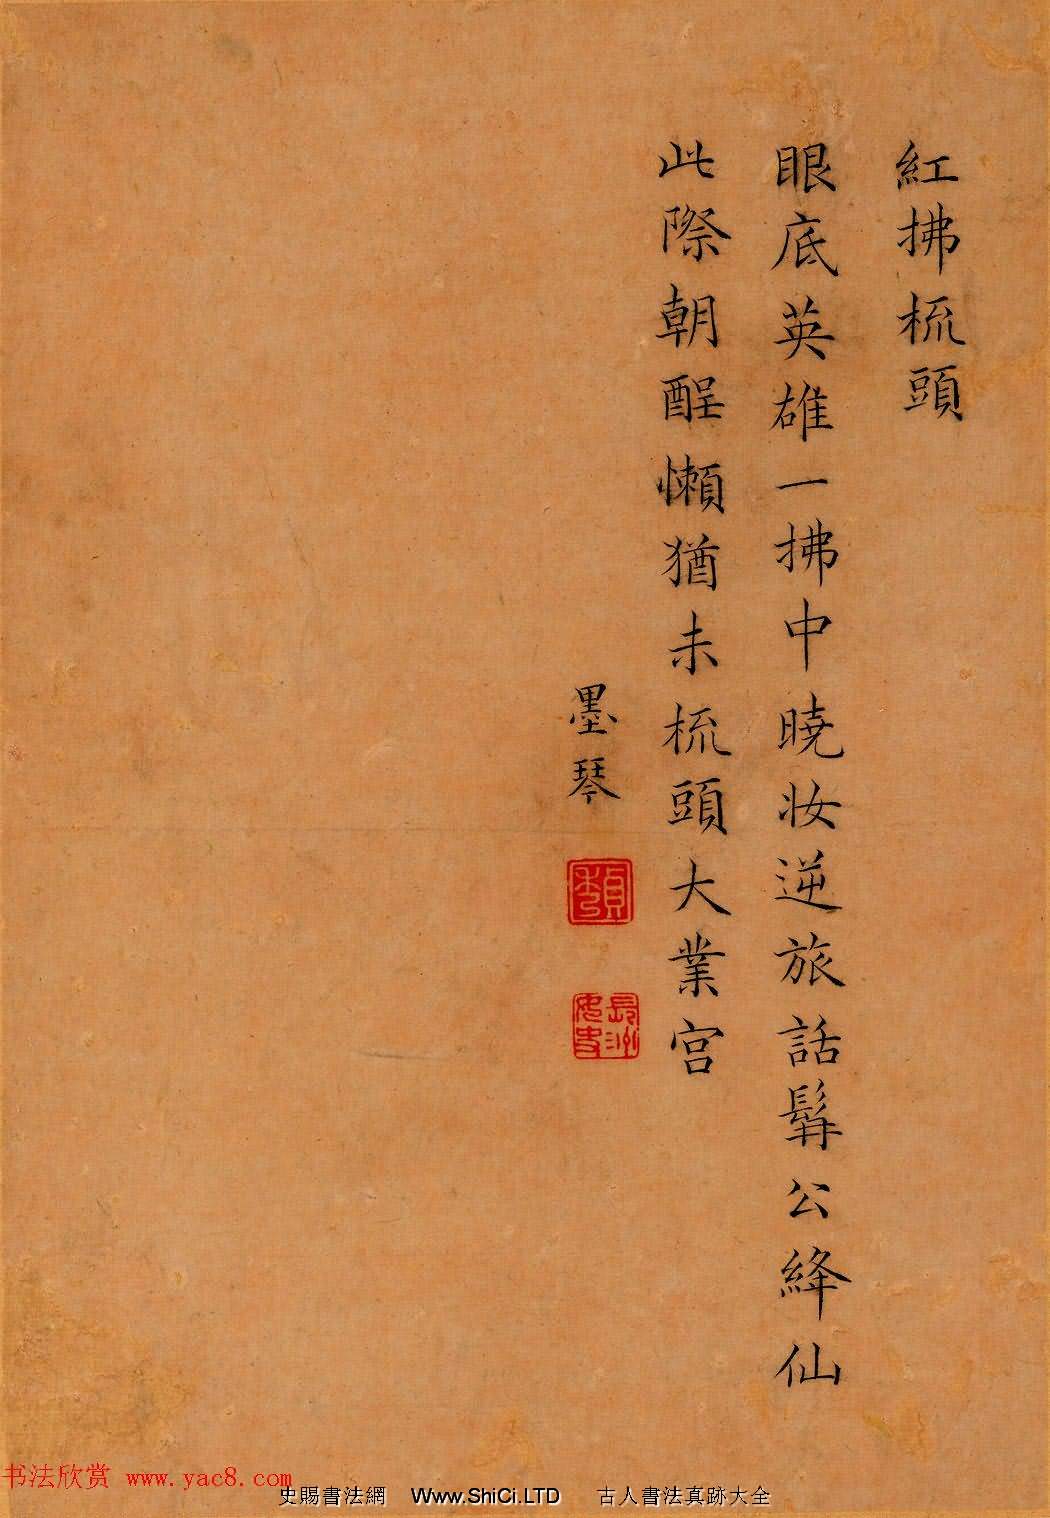 紅拂梳頭
眼底英雄一拂中曉妆逆旅話髯公絳仙
此際朝酲懶猶未梳頭大業宮
墨琴
長洲女史
书法欣赏 www.yac8.com
史賜書法網 Www.ShiCi.LTD 古人書法真跡大全